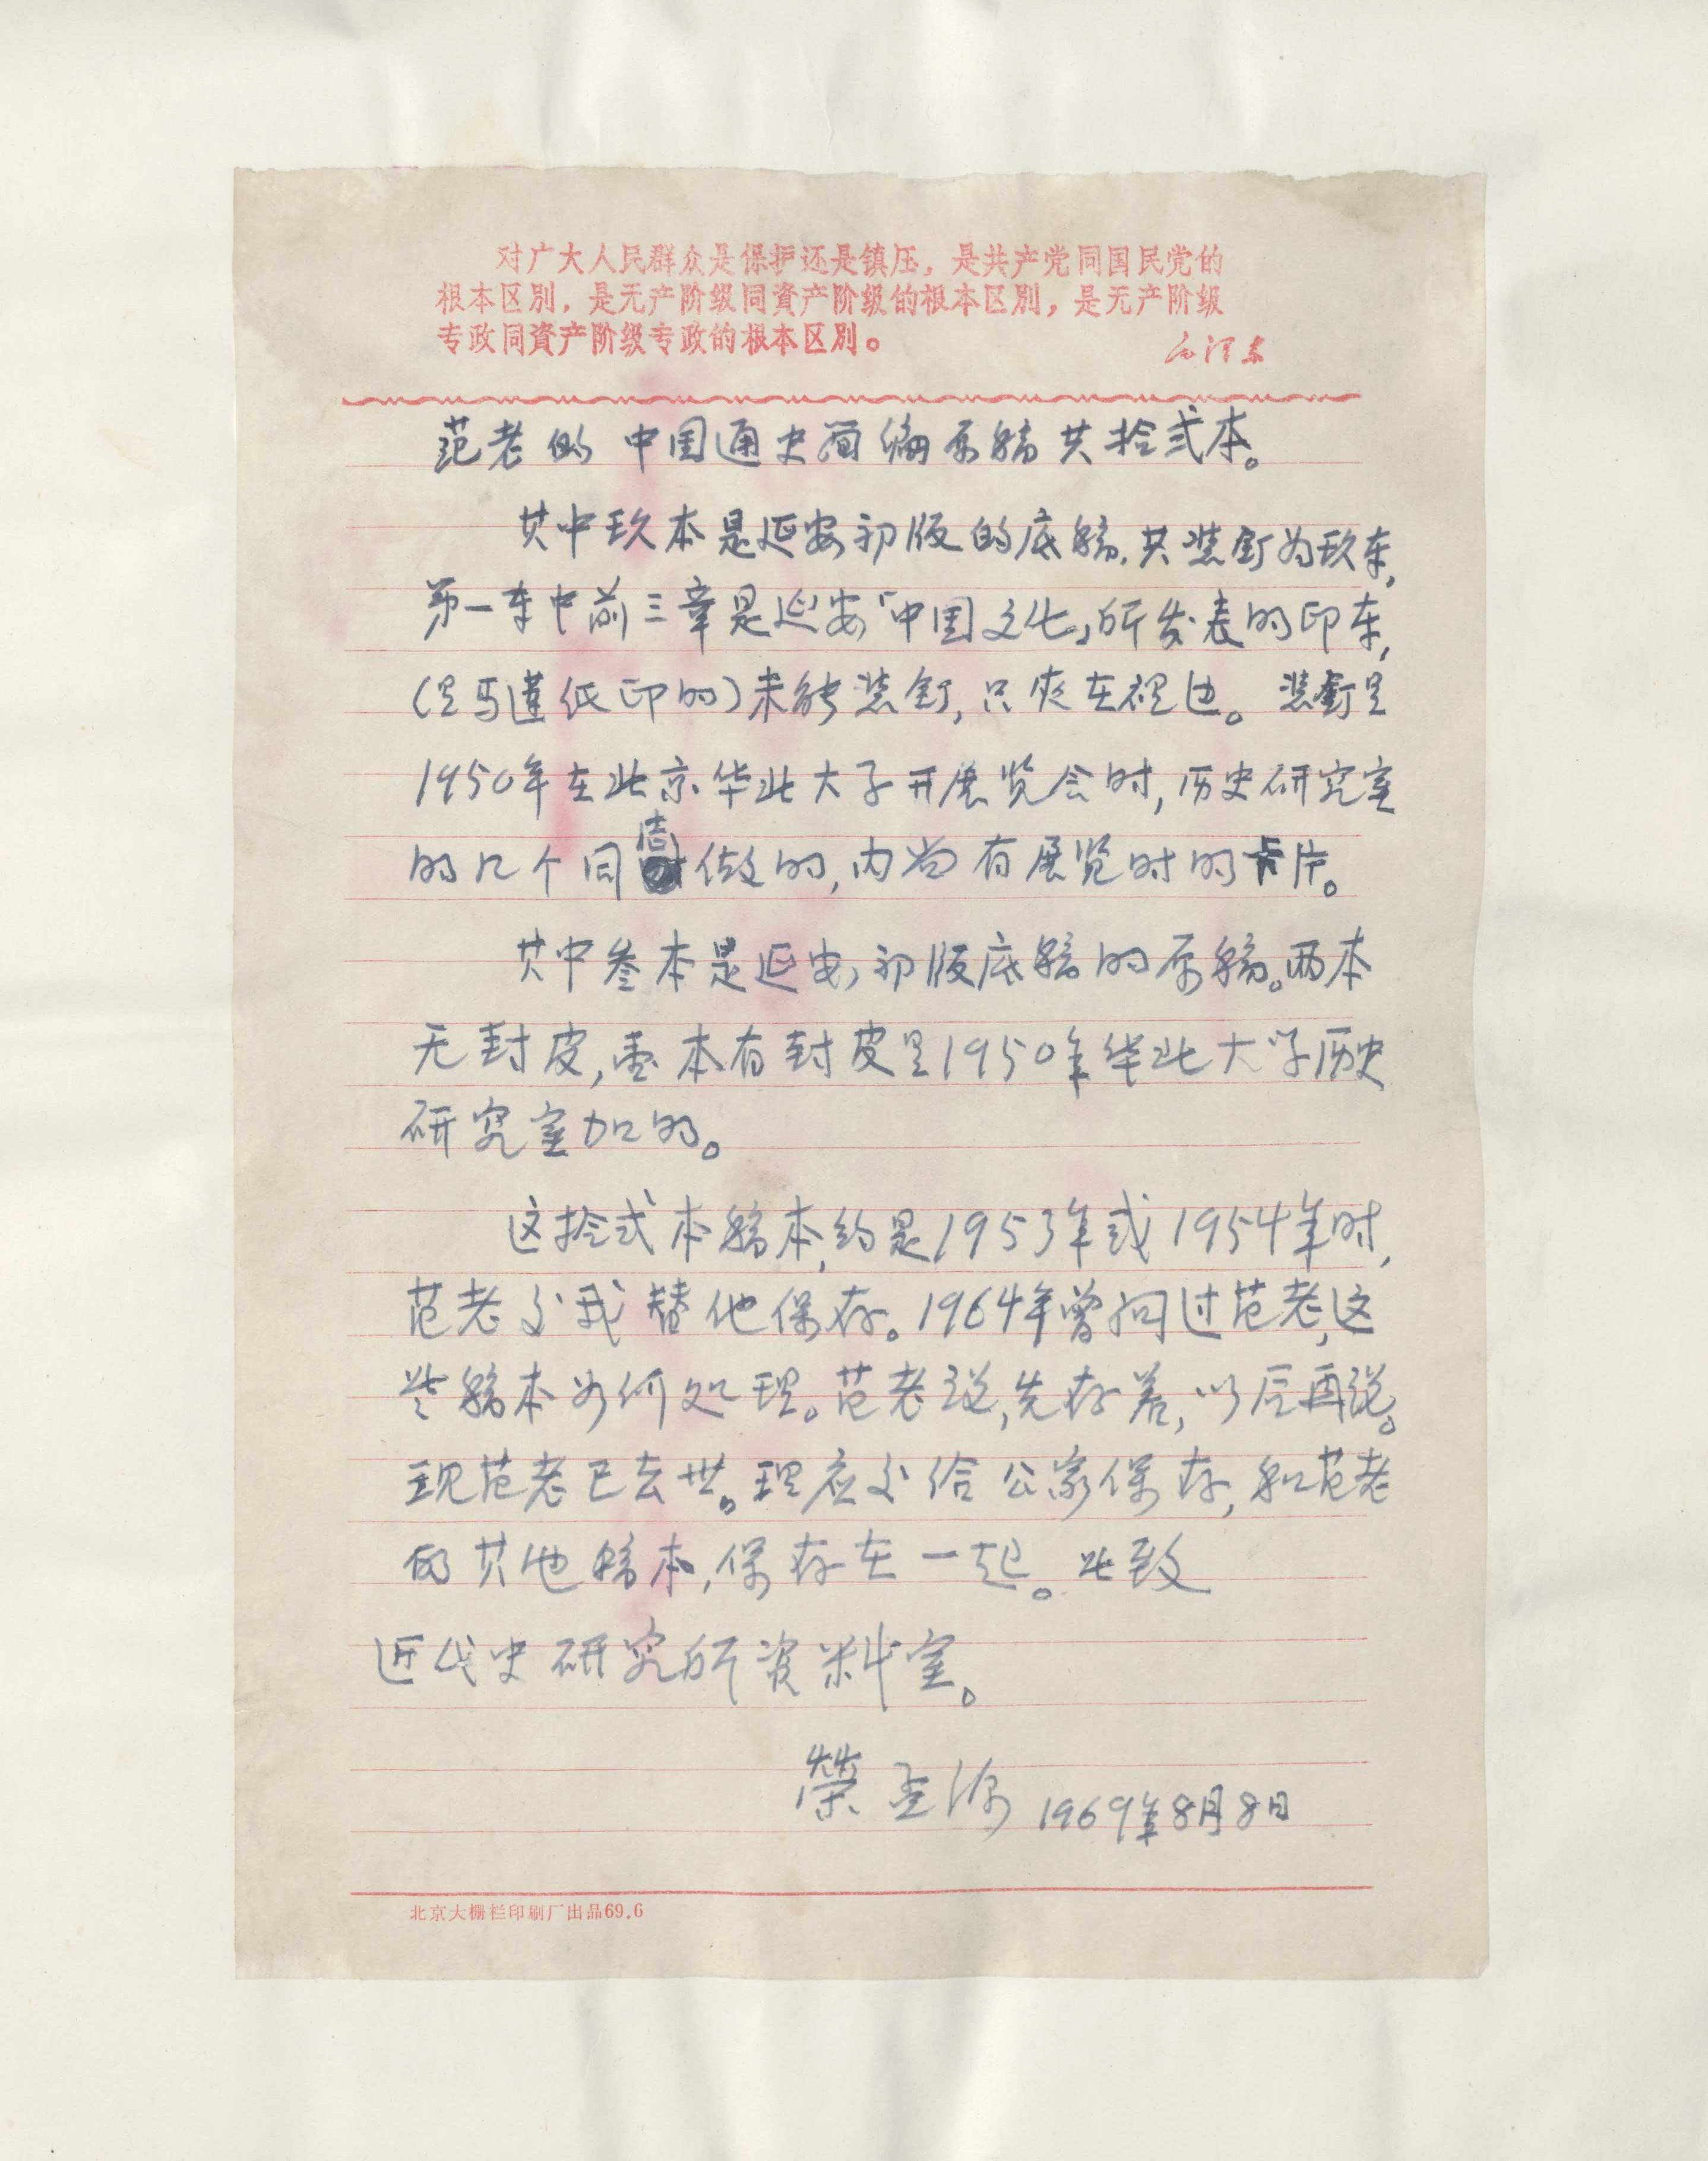 对广大人民群众是保护还是镇压，是共产党同国民党的
根本区别，是无产阶级同資产阶级的根本区别，是无产阶级
专政同資产阶级专政的根本区别。
毛泽东
范老的中国通史简编原稿共拾弍本。
其中玖本是延安初版的底稿，共装釘为玖本，
第一本中前三章是延安「中国文化」所发表的印本，
（是马莲纸印的）未能装釘，只夹在裡边。装釘是
1950年在北京华北大学开展览会时，历史研究室
的几个同志做的，内尚有展览时的卡片。
其中叁本是延安初版底稿的原稿。两本
无封皮，壹本有封皮是1950年华北大学历史
研究室加的。
这拾弍本稿本，约是1953年或1954年时，
范老交我替他保存。1964年曾问过范老，这
些稿本如何处理。范老说，先存着，以后再说。
现范老已去世。现应交给公家保存，和范老
的其他稿本，保存在一起。此致
近代史研究所资料室。
榮孟源 1969年8月8日
北京大栅栏印刷厂出品69.6